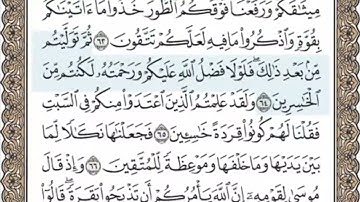 مِيثَٰقَكُمْ وَرَفَعْنَا فَوْقَكُمُ ٱلطُّورَ خُذُوا۟ مَآ ءَاتَيْنَٰكُم
بِقُوَّةٍ وَٱذْكُرُوا۟ مَا فِيهِ لَعَلَّكُمْ تَتَّقُونَ ٦٣ ثُمَّ تَوَلَّيْتُم
مِّنۢ بَعْدِ ذَٰلِكَ ۖ فَلَوْلَا فَضْلُ ٱللَّهِ عَلَيْكُمْ وَرَحْمَتُهُۥ لَكُنتُم مِّنَ
ٱلْخَٰسِرِينَ ٦٤ وَلَقَدْ عَلِمْتُمُ ٱلَّذِينَ ٱعْتَدَوْا۟ مِنكُمْ فِى ٱلسَّبْتِ
فَقُلْنَا لَهُمْ كُونُوا۟ قِرَدَةً خَٰسِـِٔينَ ٦٥ فَجَعَلْنَٰهَا نَكَٰلًا لِّمَا
بَيْنَ يَدَيْهَا وَمَا خَلْفَهَا وَمَوْعِظَةً لِّلْمُتَّقِينَ ٦٦ وَإِذْ قَالَ
مُوسَىٰ لِقَوْمِهِۦٓ إِنَّ ٱللَّهَ يَأْمُرُكُمْ أَن تَذْبَحُوا۟ بَقَرَةً ۖ قَالُوٓا۟